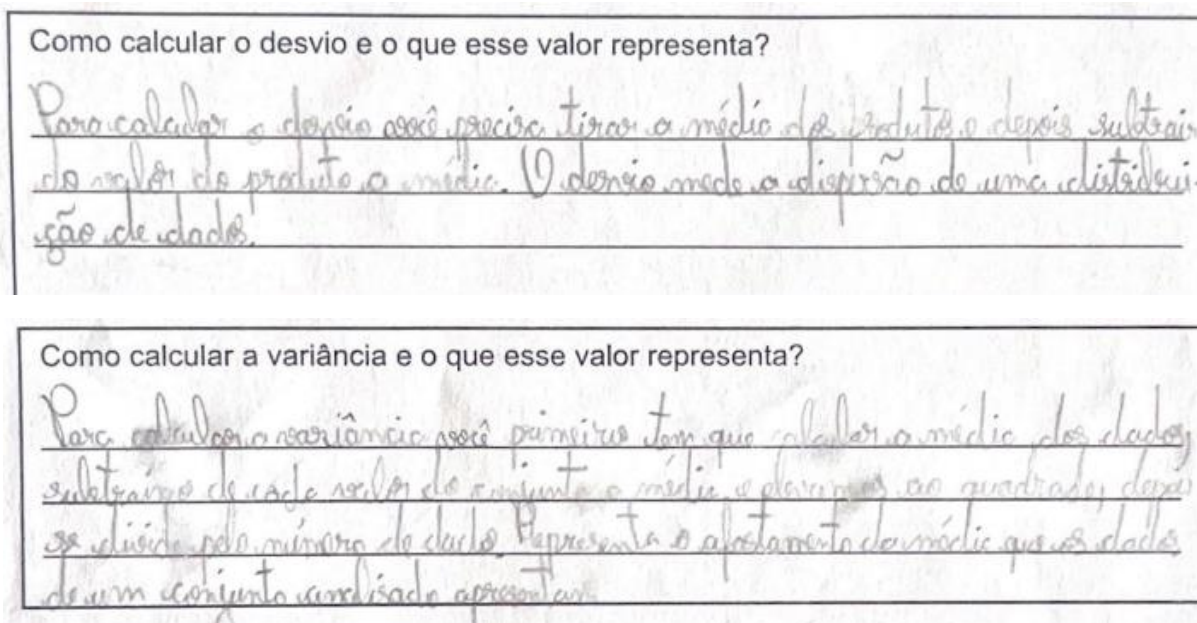 Como calcular o desvio e o que esse valor representa?
Para calcular o desvio você precisa tirar a média dos produtos e depois subtrair
do valor do produto a média. O desvio mede a dispersão de uma distribui-
ção de dados.
Como calcular a variância e o que esse valor representa?
Para calcular a variância você primeiro tem que calcular a média dos dados,
subtraímos de cada valor do conjunto a média e elevamos ao quadrado, depois
se divide pelo número de dados. Representa o afastamento da média que os dados
de um conjunto analisado apresentam.